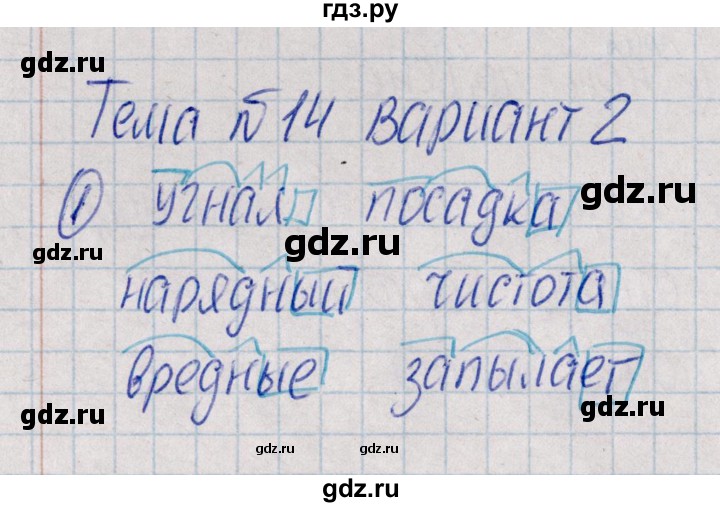 гдз.ру
gdz.ru
gdz.ru
Тема №14 вариант 2
① угнал посадка
gdz.ru
gdz.ru
gdz.ru
нарядный чистота
gdz.ru
gdz.ru
вредные запылает
gdz.ru
gdz.ru
gdz.ru
gdz.ru
gdz.ru